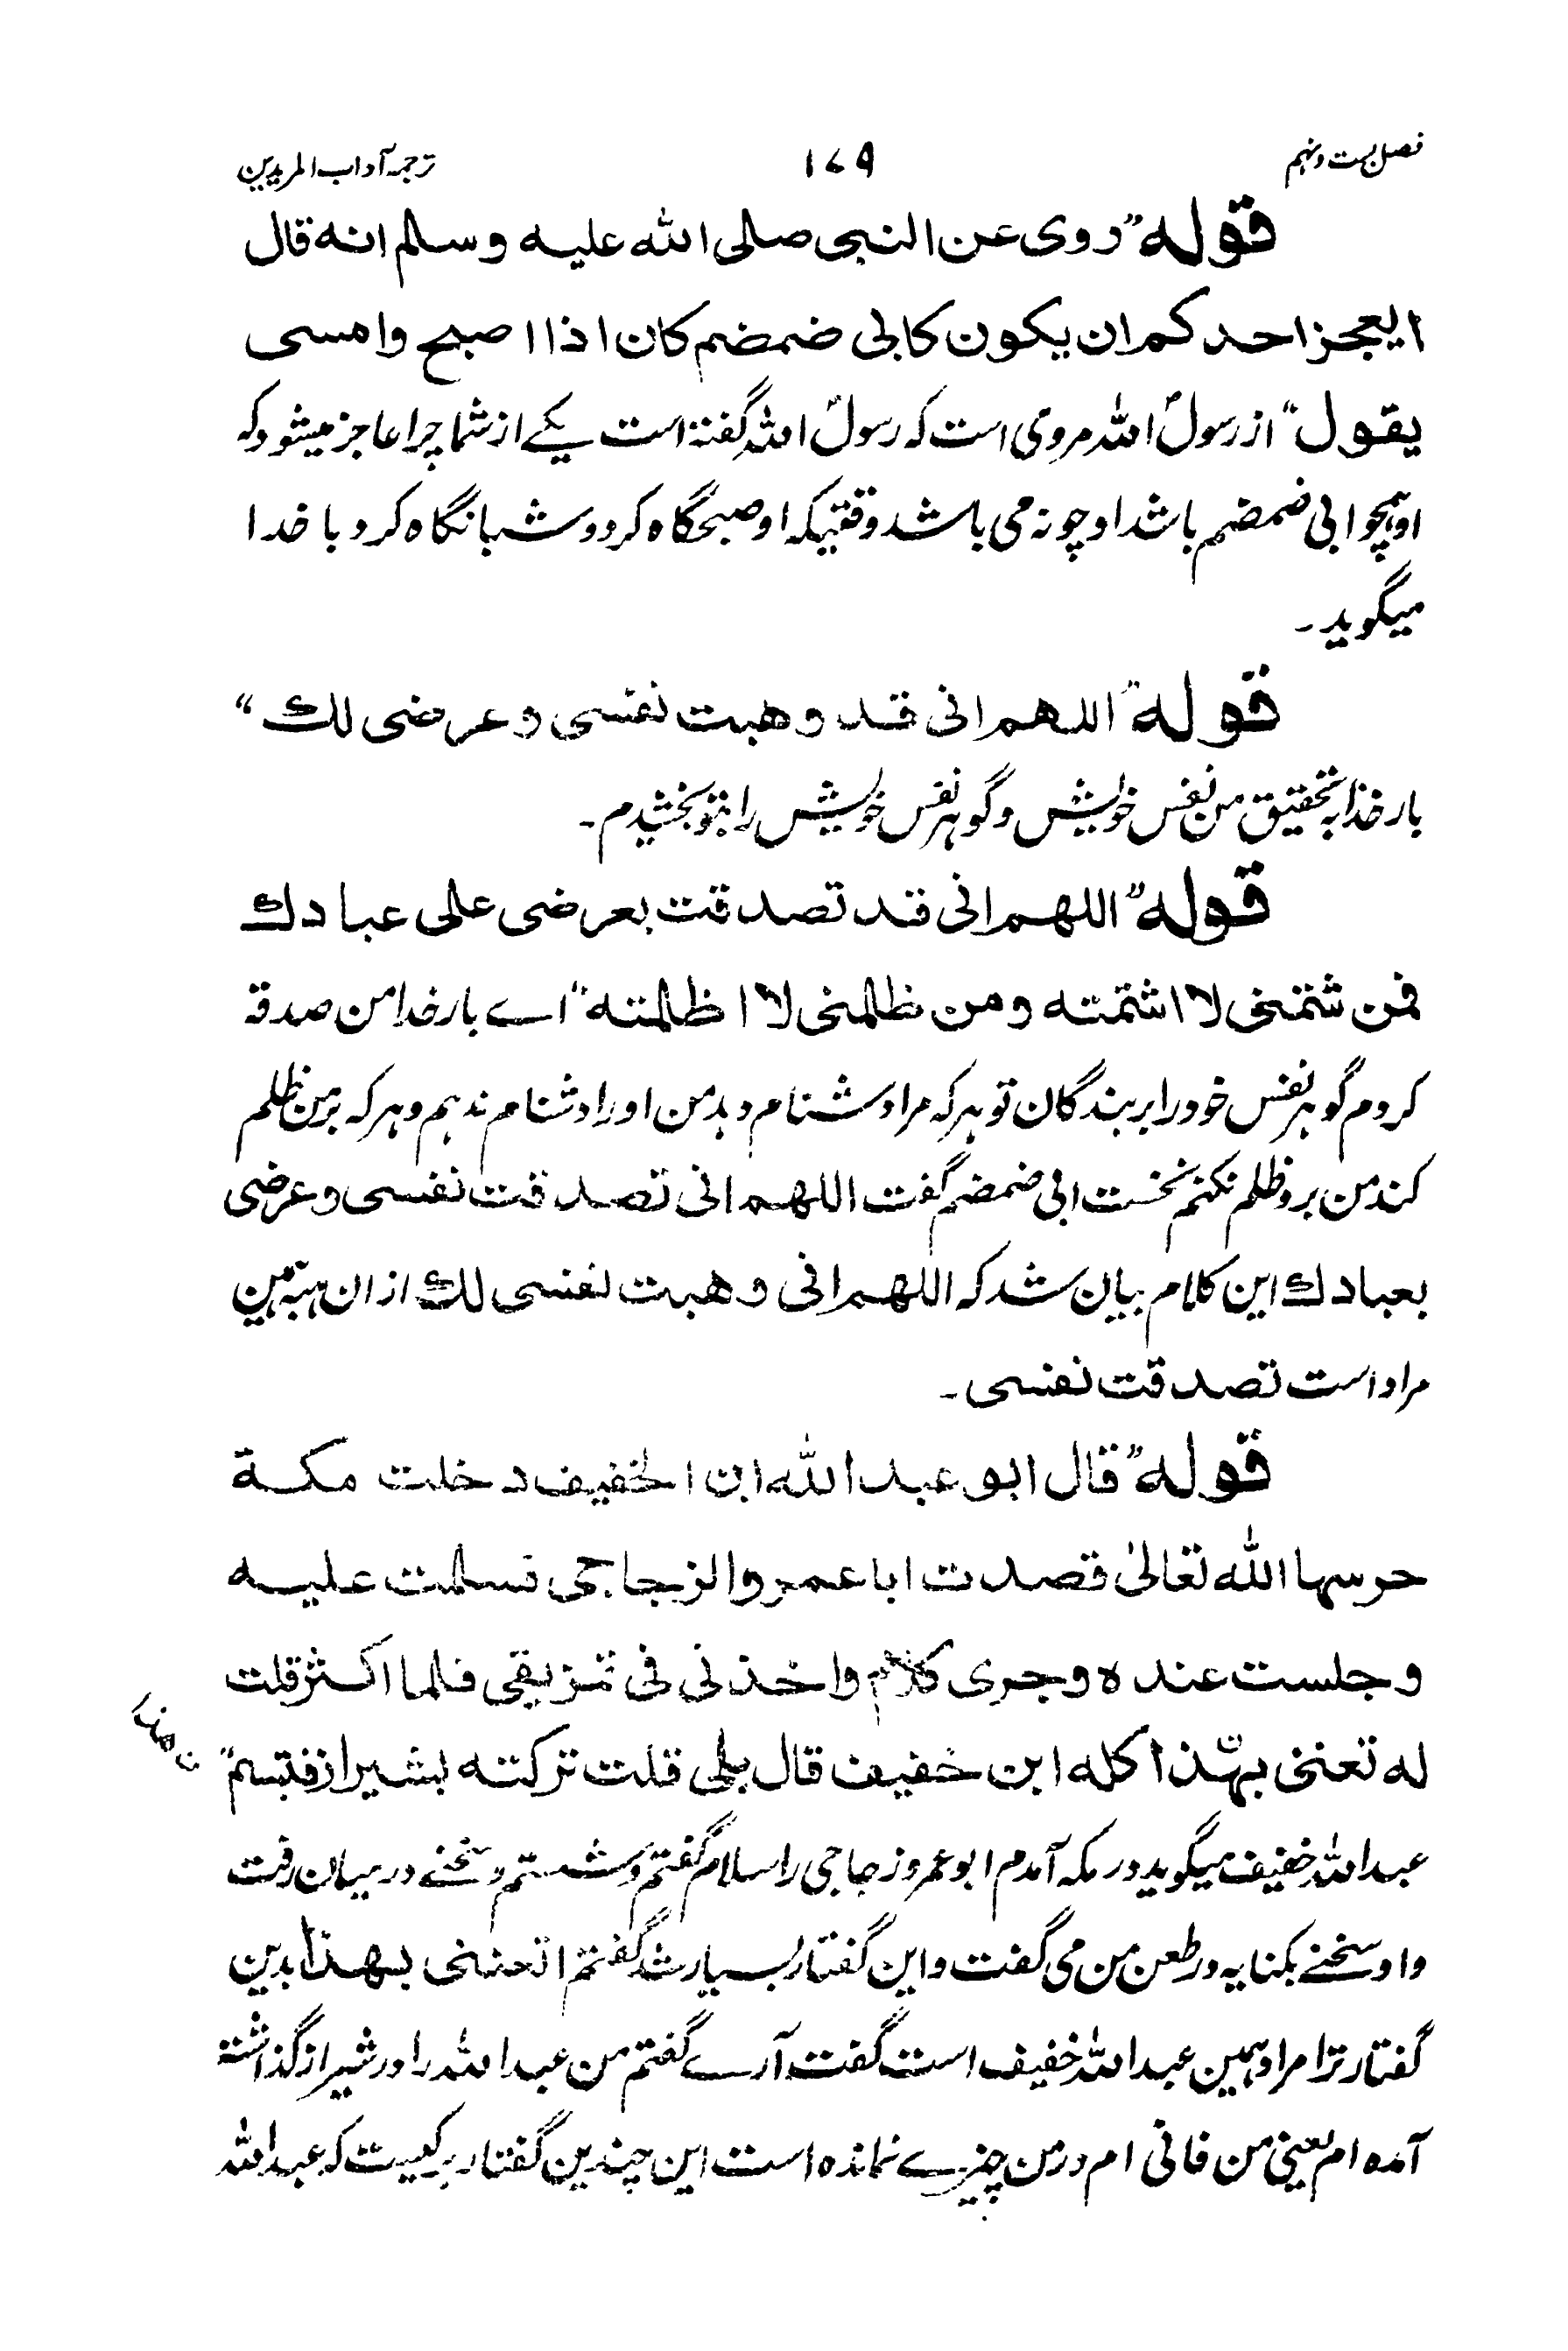 فصل بست و نہم ۱۷۹ ترجمہ آداب المریدین
قوله ”روی عن النبی صلی الله علیه وسلم انه قال
ایعجز احد کم ان یکون کابی ضمضم کان اذا اصبح وامسی
یقول“ از رسولؐ الله مروی است که رسولؐ الله گفته است یکے از شما چرا عاجز میشود که
او ہمچو ابی ضمضم باشد او چونه می باشد وقتیکه او صبحگاه کرد و شبانگاه کرد با خدا
میگوید۔
قوله ”اللهم انی قد وهبت نفسی وعرضی لك“
بار خدا به تحقیق من نفس خویش و گوہر نفس خویش را بتو بخشیدم۔
قوله ”اللهم انی قد تصدقت بعرضی علی عبادك
فمن شتمنی لا اشتمته ومن ظلمنی لا اظلمته“ اے بار خدا من صدقه
کردم گوہر نفس خود را بر بندگان تو ہر که مرا دشنام دہد من او را دشنام ندہم و ہر که بر من ظلم
کند من برو ظلم نکنم نخست ابی ضمضم گفت اللهم انی تصدقت نفسی وعرضی
بعبادك این کلام بیان شد که اللهم انی وهبت نفسی لك از ان ہبه ہمین
مراد است تصدقت نفسی۔
قوله ”قال ابو عبد الله ابن الخفیف دخلت مکة
حرسها الله تعالیٰ قصدت ابا عمرو الزجاجی فسلمت علیه
وجلست عنده وجری کلام واخذنی فی تمزیقی فلما اکثر قلت
له تعنی بهٰذا کله ابن خفیف قال بلی قلت ترکته بشیراز فتبسم“
عبد الله خفیف میگوید در مکه آمدم ابو عمرو زجاجی را سلام گفتم و نشستم و سخنے در میان رفت
و او سخنے بکنایه در طعن من می گفت و این گفتار بسیار شد گفتم اتعننی بهذا بدین
گفتار ترا مراد ہمین عبد الله خفیف است گفت آرے گفتم من عبد الله را در شیراز گذاشته
آمده ام یعنی من فانی ام در من چیزے نمانده است این چندین گفتار بر کیست که عبد الله